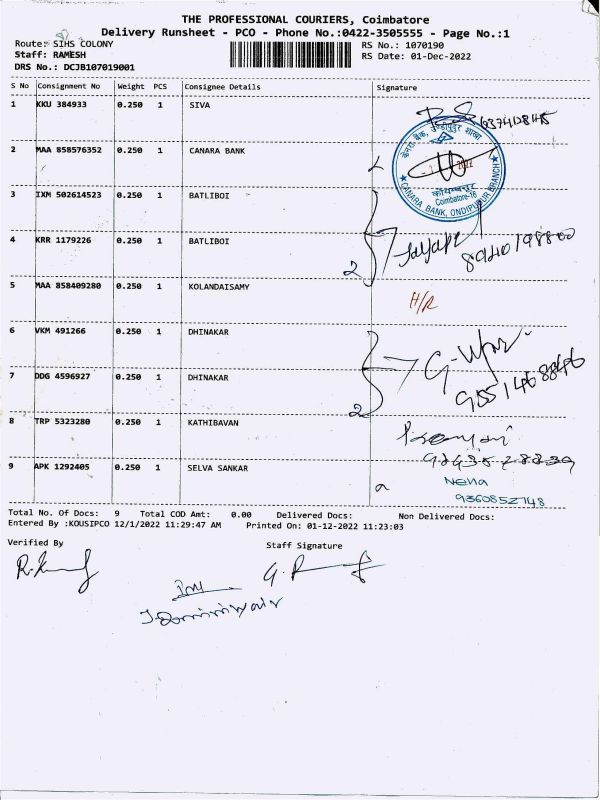 THE PROFESSIONAL COURIERS, Coimbatore
Delivery Runsheet - PCO - Phone No.:0422-3505555 - Page No.:1
Route: SIHS COLONY
Staff: RAMESH
DRS No.: DCJB107019001
RS No.: 1070190
RS Date: 01-Dec-2022
S No Consignment No Weight PCS Consignee Details Signature
1 KKU 384933 0.250 1 SIVA
2 MAA 858576352 0.250 1 CANARA BANK
केनरा बैंक
2022
कोयम्बत्तूर
Coimbatore-16
CANARA BANK, ONDIPUDUR BRANCH
3 IXM 502614523 0.250 1 BATLIBOI
4 KRR 1179226 0.250 1 BATLIBOI
2
8940198800
5 MAA 858409280 0.250 1 KOLANDAISAMY
H/R
6 VKM 491266 0.250 1 DHINAKAR
7 DDG 4596927 0.250 1 DHINAKAR
2
9551468846
8 TRP 5323280 0.250 1 KATHIBAVAN
9 APK 1292405 0.250 1 SELVA SANKAR
Neha
9360852748
Total No. Of Docs: 9 Total COD Amt: 0.00 Delivered Docs: Non Delivered Docs:
Entered By :KOUSIPCO 12/1/2022 11:29:47 AM Printed On: 01-12-2022 11:23:03
Verified By Staff Signature